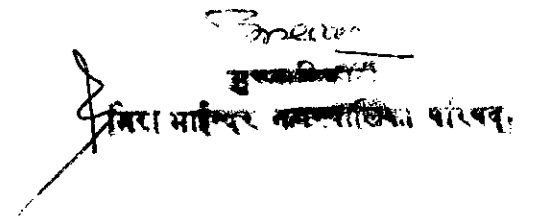 मुख्याधिकारी
मिरा भाईन्दर नगरपालिका परिषद.